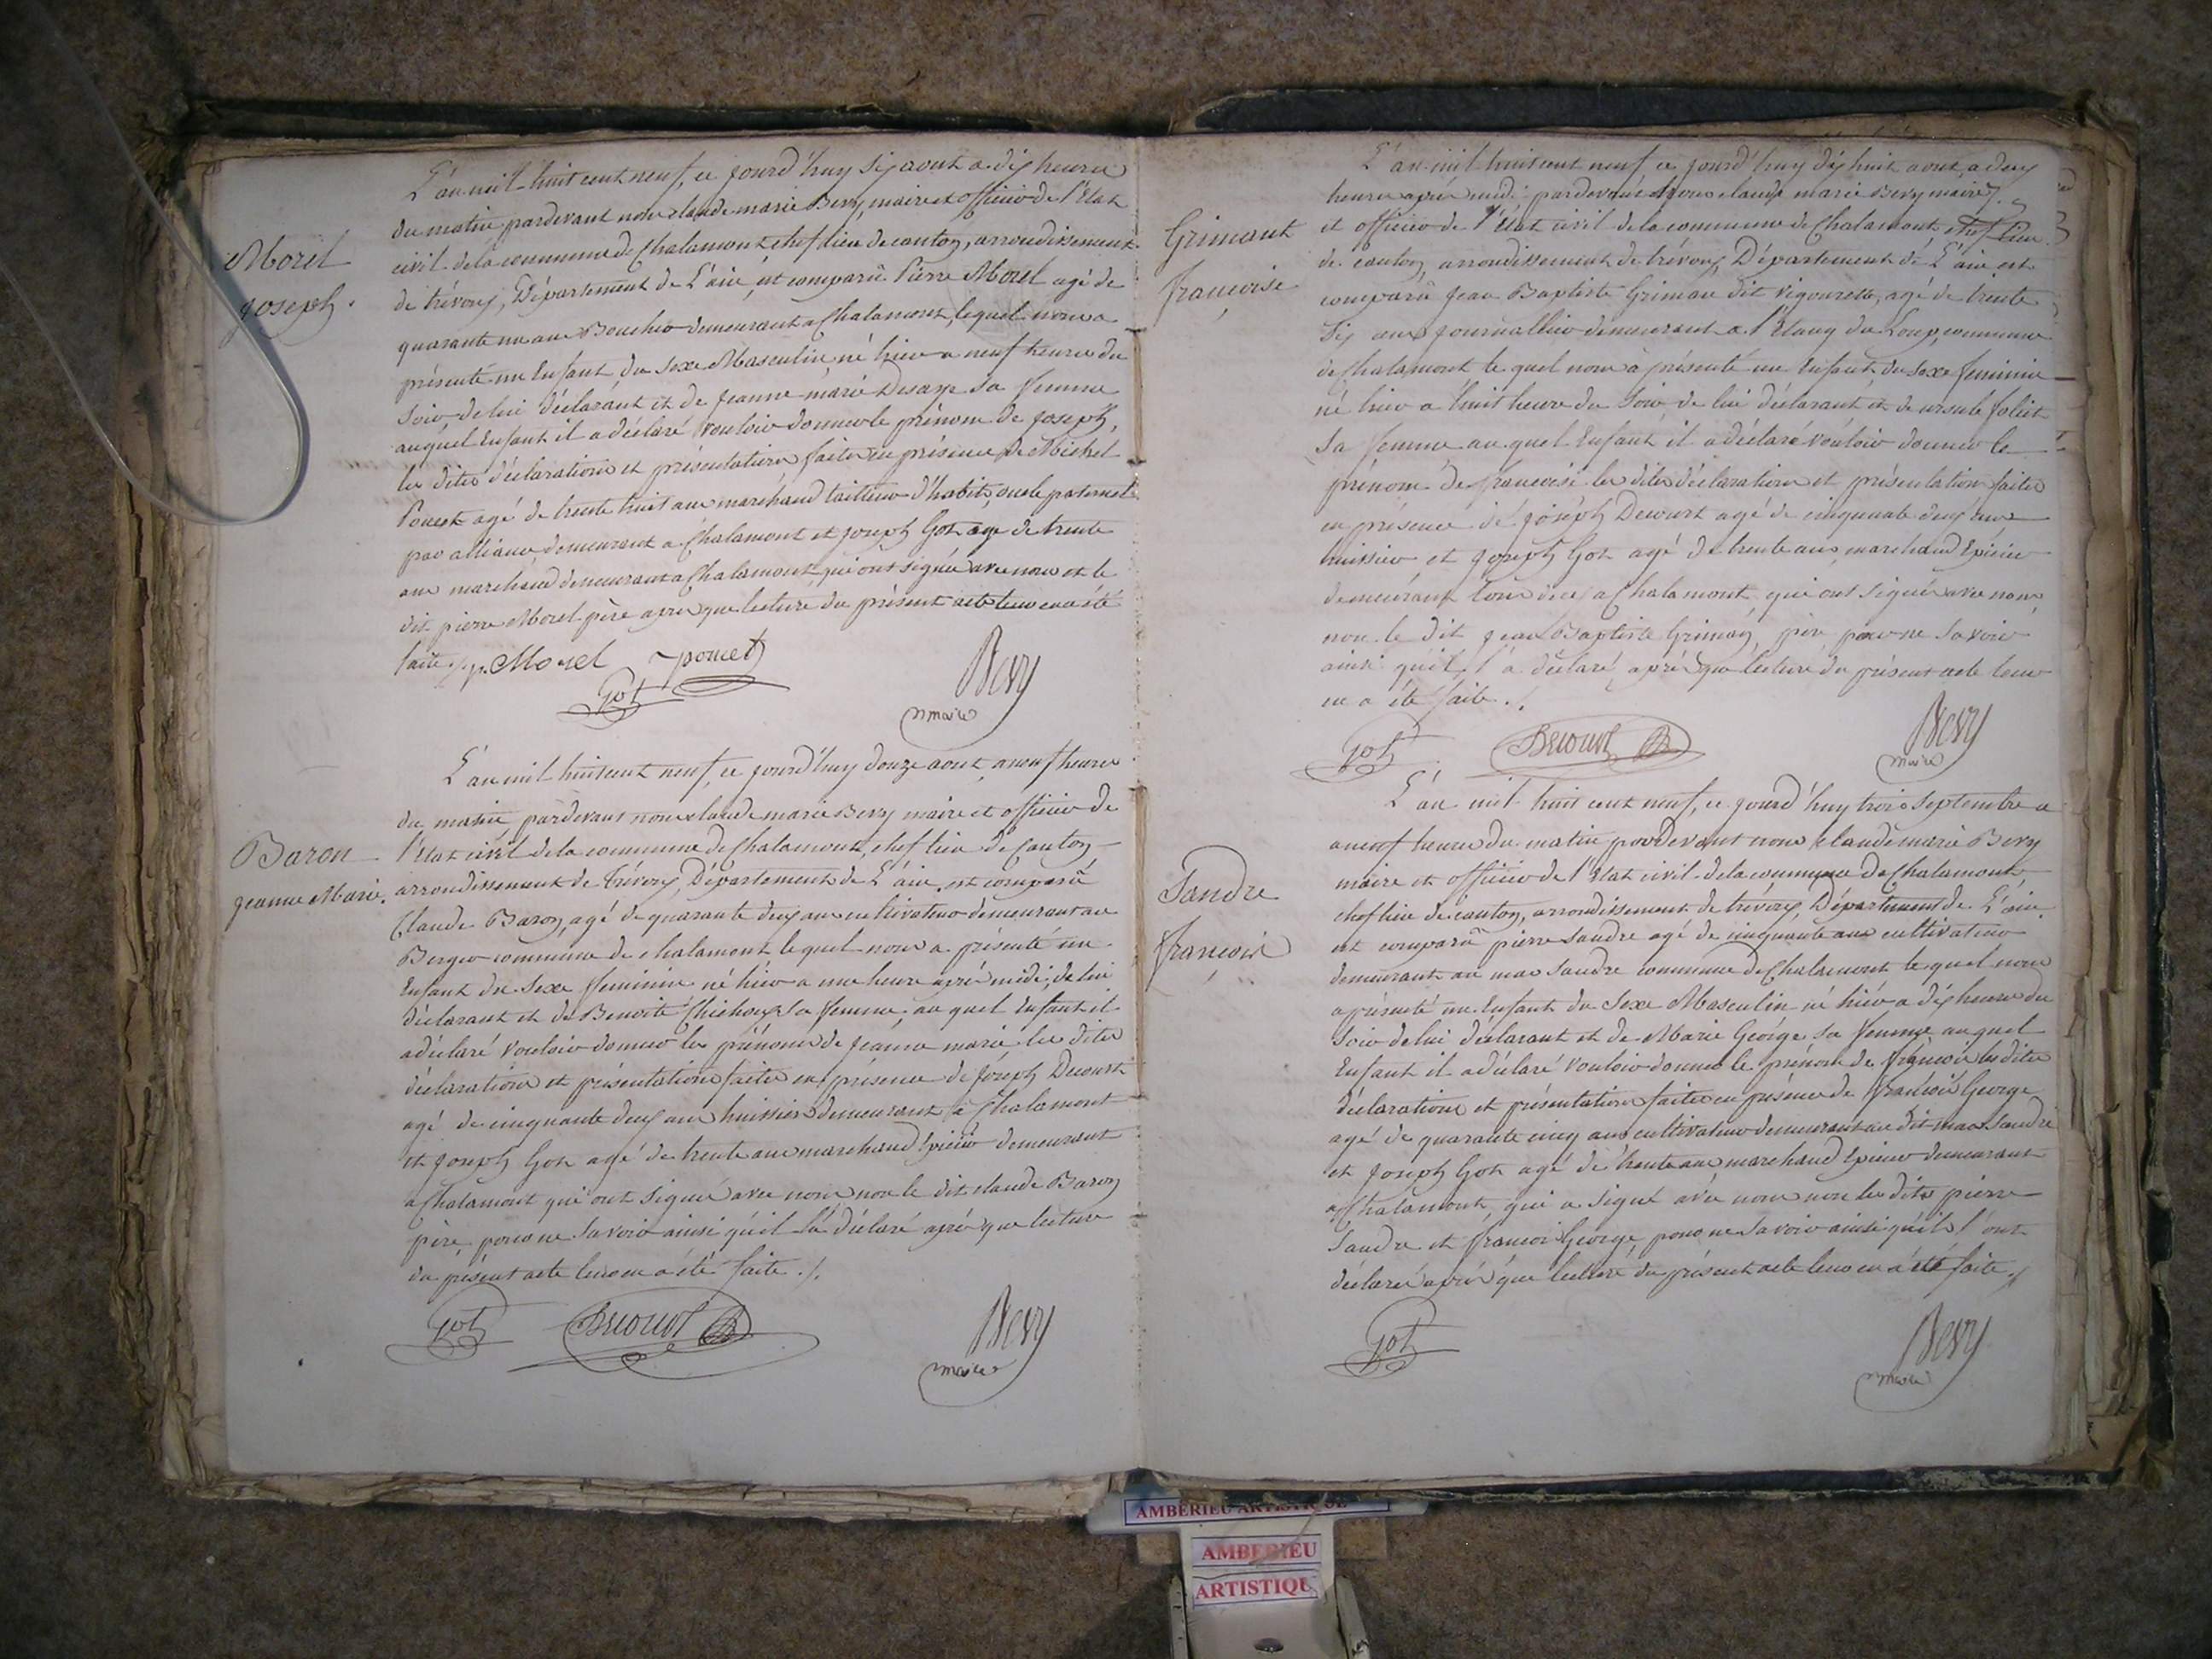 Morel
joseph.
L'an mil huit cent neuf, ce jourd'huy six aout a dix heures
du matin pardevant nous claude marie Bevy, maire et officier de l'Etat
civil de la commune de Chalamont, chef lieu de canton, arrondissement
de trévoux, Département de L'ain, est comparû Pierre Morel agé de
quarante un ans Boucher demeurant a Chalamont, lequel nous a
présenté un Enfant, du sexe Masculin, né hier a neuf heures du
soir, de lui déclarant et de jeanne marie sa femme
auquel Enfant il a déclaré vouloir donner le prénom de joseph,
les dites déclaration et présentation faites en présence de Michel
Poncet agé de trente huit ans marchand tailleur d'habits, oncle paternel
par alliance, demeurant a Chalamont et joseph Got agé de trente
ans marchand demeurant a Chalamont, qui ont signés avec nous et le
dit pierre Morel père apres que lecture du présent acte leur en a été
faite ./. p. Morel poncet
Got Bevy
maire
Baron
jeanne Marie.
L'an mil huit cent neuf, ce jourd'huy douze aout, a neuf heures
du matin, pardevant nous claude marie Bevy maire et officier de
l'Etat civil de la commune de Chalamont, chef lieu de Canton
arrondissement de trévoux, Département de L'ain, est comparû
Claude Baron, agé de quarante deux ans cultivateur demeurant au
Berger commune de chalamont lequel nous a présenté un
Enfant du sexe feminin né hier a une heure après midi, de lui
déclarant et de Benoite sa femme, au quel Enfant il
a déclaré vouloir donner les prénoms de jeanne marie les dites
déclaration et présentation faites en présence de joseph Decourt
agé de cinquante deux ans huissier demeurant a Chalamont
et joseph Got agé de trente ans marchand Epicier demeurant
a Chalamont qui ont signés avec nous non le dit claude Baron
père, pour ne savoir ainsi qu'il l'a déclaré après que lecture
du présent acte leur en a été faite ./.
Got Decourt Bevy
maire
Grimaut
françoise
L'an mil huit cent neuf ce jourd'huy dix huit aout, a deux
heures après midi pardevant nous claude marie Bevy maire
et officier de l'Etat civil de la commune de Chalamont chef lieu
de canton, arrondissement de trévoux, Département de L'ain est
comparû jean Baptiste Grimau dit vigourette, agé de trente
six ans journallier demeurant a l'Etang du Loup, commune
de Chalamont le quel nous a présenté un Enfant du sexe feminin
né hier a huit heures du soir de lui déclarant et de ursule joliet
sa femme au quel Enfant il a déclaré vouloir donner le
prénom de françoise les dites déclaration et présentation faites
en présence de joseph Decourt agé de cinquante deux ans
huissier et joseph Got agé de trente ans, marchand Epicier
demeurant tous deux a Chalamont, qui ont signés avec nous
non le dit jean Baptiste Grimau, père pour ne savoir
ainsi qu'il l'a déclaré, après que lecture du présent acte leur
en a été faite ./.
Got Decourt Bevy
maire
Sandre
françois
L'an mil huit cent neuf, ce jourd'huy trois septembre a
a neuf heures du matin pardevant nous claude marie Bevy
maire et officier de l'Etat civil de la commune de Chalamont
chef lieu de canton, arrondissement de trévoux, Département de L'ain,
est comparû pierre sandre agé de cinquante ans cultivateur
demeurant au mas sandre commune de Chalamont le quel nous
a présenté un Enfant du sexe Masculin né hier a dix heures du
soir de lui déclarant et de Marie George sa femme au quel
Enfant il a déclaré vouloir donner le prénom de françois les dites
déclaration et présentation faites en présence de françois George
agé de quarante cinq ans cultivateur demeurant au dit mas Sandre
et joseph Got agé de trente ans marchand Epicier demeurant
a Chalamont, qui a signé avec nous non les dits pierre
Sandre et françois George, pour ne savoir ainsi qu'ils l'ont
déclaré après que lecture du présent acte leur en a été faite ./
Got Bevy
maire
AMBERIEU ARTISTIQUE
AMBERIEU
ARTISTIQU